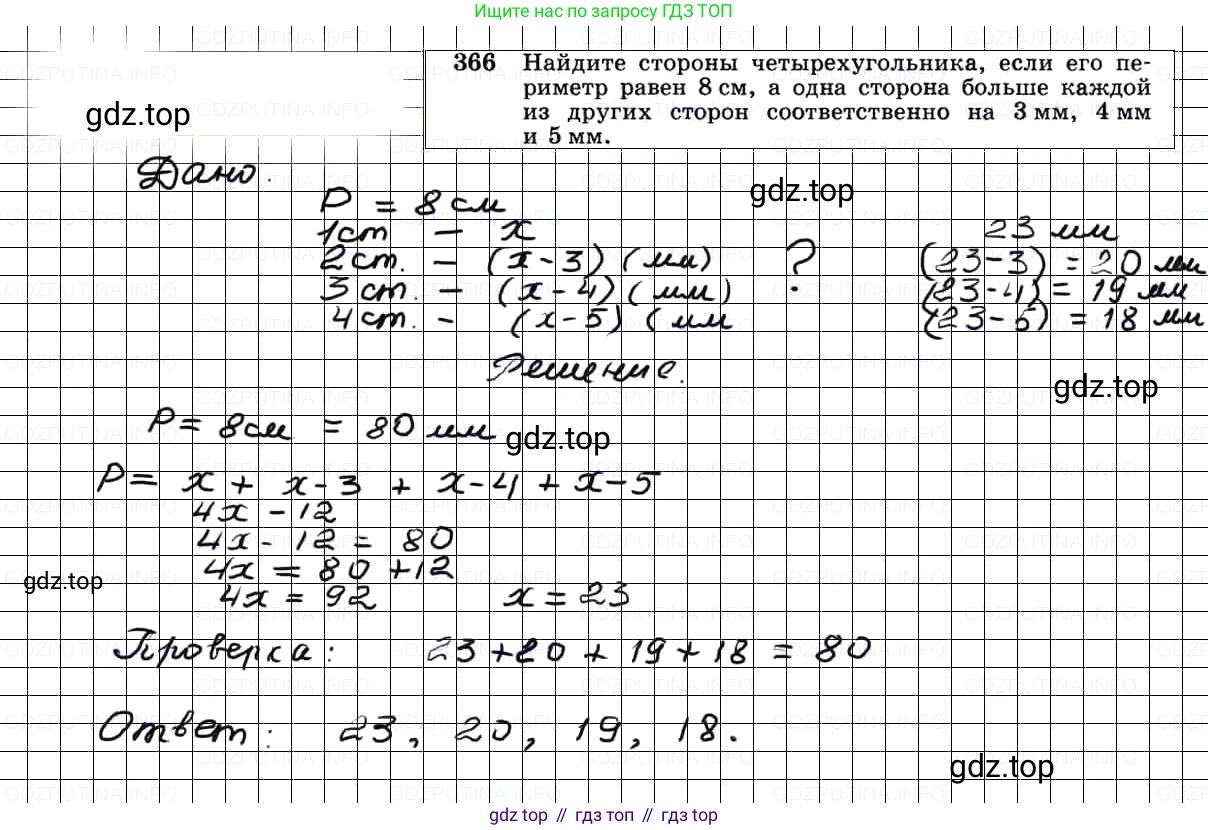 Ищите нас по запросу ГДЗ ТОП
366 Найдите стороны четырехугольника, если его пе-
риметр равен 8 см, а одна сторона больше каждой
из других сторон соответственно на 3 мм, 4 мм
и 5 мм.
gdz.top
Дано:
gdz.top
P = 8 см
1ст — x 23 мм
2ст. — (x-3) (мм) ? (23-3) = 20 мм
3 ст. — (x-4) (мм) (23-4) = 19 мм
4 ст. - (x-5) (мм (23-5) = 18 мм
Решение.
gdz.top
P = 8см = 80 мм
gdz.top
P = x + x-3 + x-4 + x-5
4x - 12
4x - 12 = 80
4x = 80 + 12
gdz.top
4x = 92 x = 23
Проверка: 23 + 20 + 19 + 18 = 80
Ответ: 23, 20, 19, 18.
gdz.top
gdz top // гдз топ // gdz top